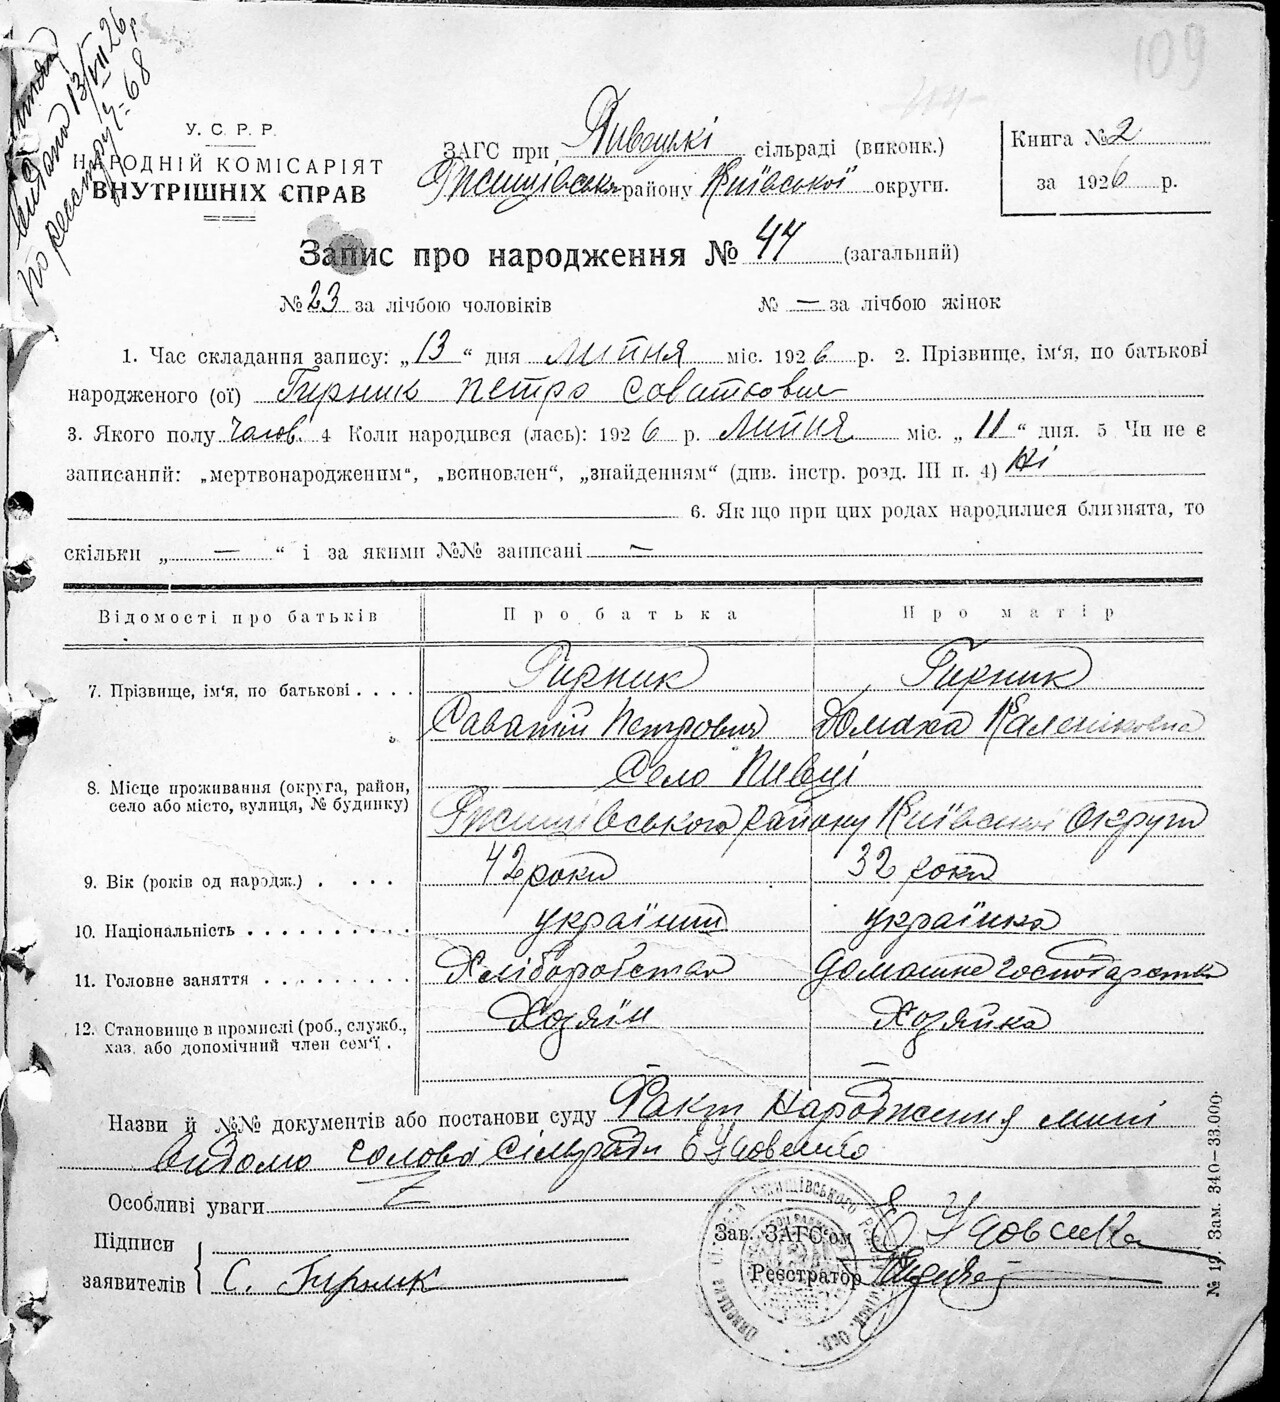 109
видано 13/VII 26 р
по реєстру № 68
У. С. Р. Р.
НАРОДНІЙ КОМІСАРІЯТ
ВНУТРІШНІХ СПРАВ
ЗАГС при Пивецькі сільраді (виконк.)
Ржищівськ району Київської округи.
Книга № 2
за 1926 р.
Запис про народження № 44 (загальний)
№ 23 за лічбою чоловіків № — за лічбою жінок
1. Час складання запису: „ 13 “ дня липня міс. 1926 р. 2. Прізвище, ім‘я, по батькові
народженого (ої) Гирник Петро Саваткович
3. Якого полу чолов. 4 Коли народився (лась): 1926 р. Липня міс. „ 11 “ дня. 5 Чи не є
записаний: „мертвонародженим“, „всиновлен“, „знайденням“ (див. інстр. розд. III п. 4) Ні
6. Якщо при цих родах народилися близнята, то
скільки „ — “ і за якими №№ записані —
Відомості про батьків Про батька Про матір
7. Прізвище, ім‘я, по батькові . . . . Гирник Гирник
Саватій Петрович Домаха Каленіковна
8. Місце проживання (округа, район, Село Пивці
село або місто, вулиця, № будинку) Ржищівського району Київської Округи
9. Вік (років од народж.) . . . . 42 роки 32 роки
10. Національність . . . . . . . . . . українець українка
11. Головне заняття . . . . . . . . . Хліборобство домашнє господарство
12. Становище в промислі (роб., служб., Хозяїн Хозяйка
хаз. або допомічний член сем‘ї .
Назви й №№ документів або постанови суду Факт народження мині
видомо голова сільради Є Удовенко
Особливі уваги
Підписи
заявителів С. Гирник
Зав. ЗАГС‘ом Є Удовенко
Реєстратор
№ 19. Зам. 340—33.000.